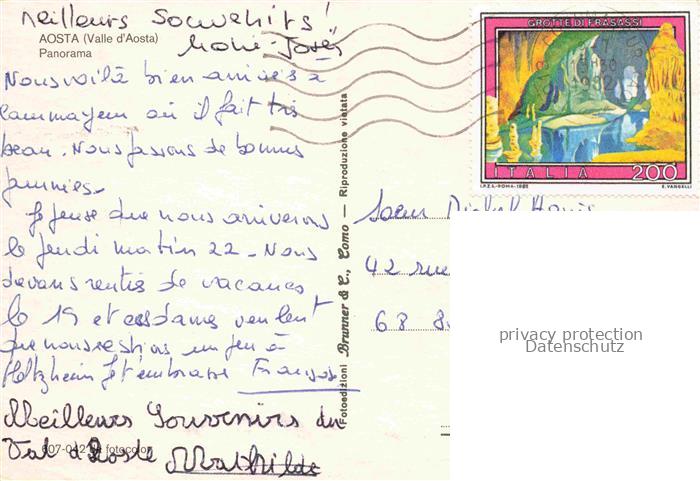 Meilleurs Souvenirs!
Marie-José
AOSTA (Valle d'Aosta)
Panorama
Nous voilà bien arrivés à
Courmayeur où il fait très
beau. Nous passons de bonnes
journées.
Je pense que nous arriverons
le jeudi matin 22 - Nous
devons rentrer de vacances
le 19 et ces dames veulent
que nous restions un peu à
Holtzheim Je t'embrasse
Meilleurs Souvenirs du
Val d'Aoste Mathilde
607-042 fotocolor
Fotoedizioni Brunner & C., Como — Riproduzione vietata
GROTTE DI FRASASSI
ITALIA 200
I.P.Z.S.-ROMA-1982
E. VANGELLI
Soeur
42 rue
68
privacy protection
Datenschutz